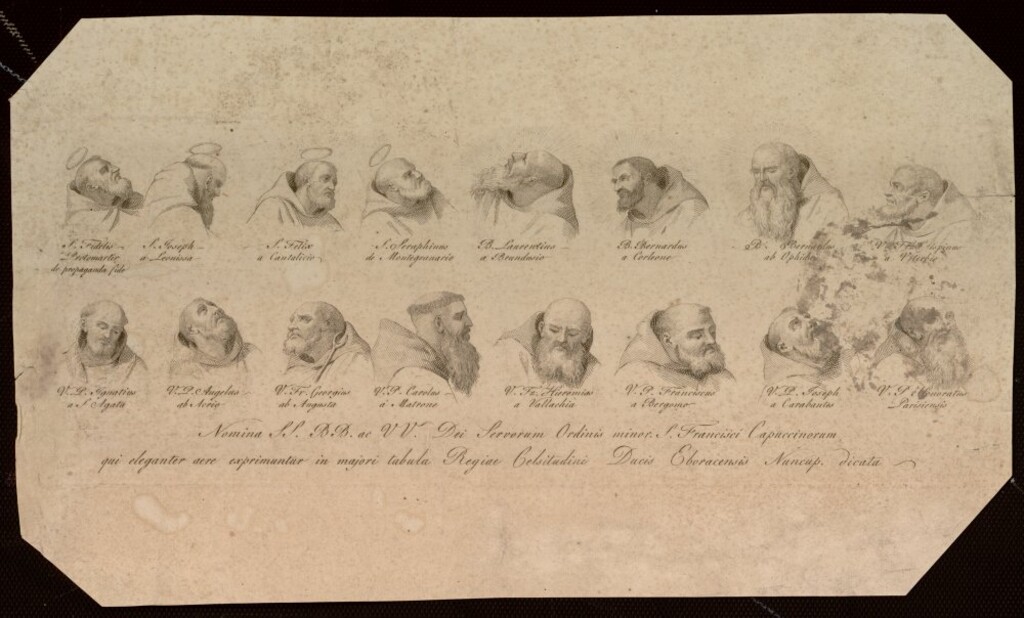 S. Fidelis
Protomartir
de propaganda fide
S. Joseph
a Leonissa
S. Felix
a Cantalicio
S. Seraphinus
de Montegranario
B. Laurentius
a Brundusio
B. Bernardus
a Corleone
B. Bernardus
ab Ophida
a
V. P. Ignatius
a S. Agata
V. P. Angelus
ab Acrio
V. Fr. Georgius
ab Augusta
V. P. Carolus
a Matrone
V. Fr. Hieremias
a Vallachia
V. P. Franciscus
a Bergomo
V. P. Joseph
a Carabantes
V. P. Honoratus
Parisiensis
Nomina S.S. B.B. ac V.V. Dei Servorum Ordinis minor. S. Francisci Capuccinorum
qui eleganter aere exprimuntur in majori tabula Regiae Celsitudini Ducis Eboracensis Nuncup. dicata